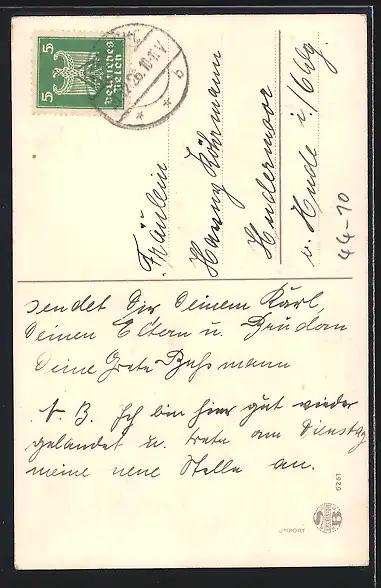 5 5
Deutsches
Reich
Fräulein
Hanny Köhrmann
Hudermoor
b. Hude i./Oldbg.
44-10
sendet Dir Deinem Karl,
Deinen Eltern u. Brüdern
Deine Grete Bußmann
N. B. Ich bin hier gut wieder
gelandet u. trete am Dienstag
meine neue Stelle an.
1929
IMPORT
S B